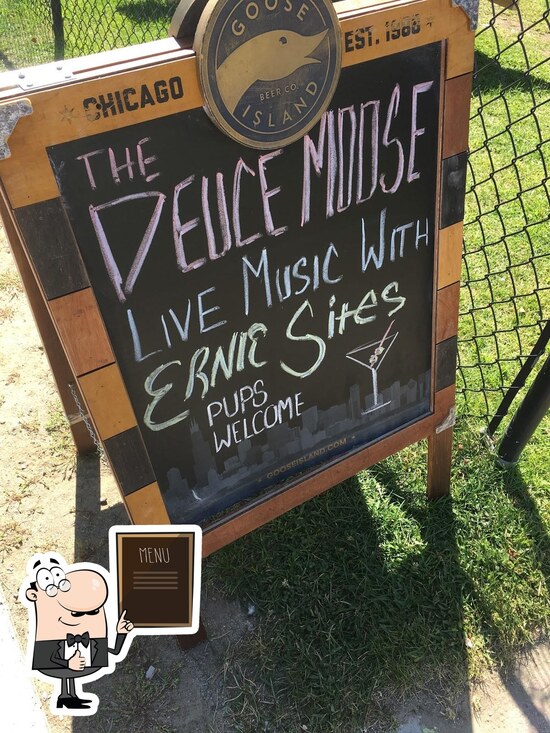 GOOSE
ISLAND
BEER CO.
CHICAGO
EST. 1988
THE
DEUCE MOOSE
LIVE MUSIC WITH
ERNIE Sites
PUPS
WELCOME
GOOSEISLAND.COM
MENU